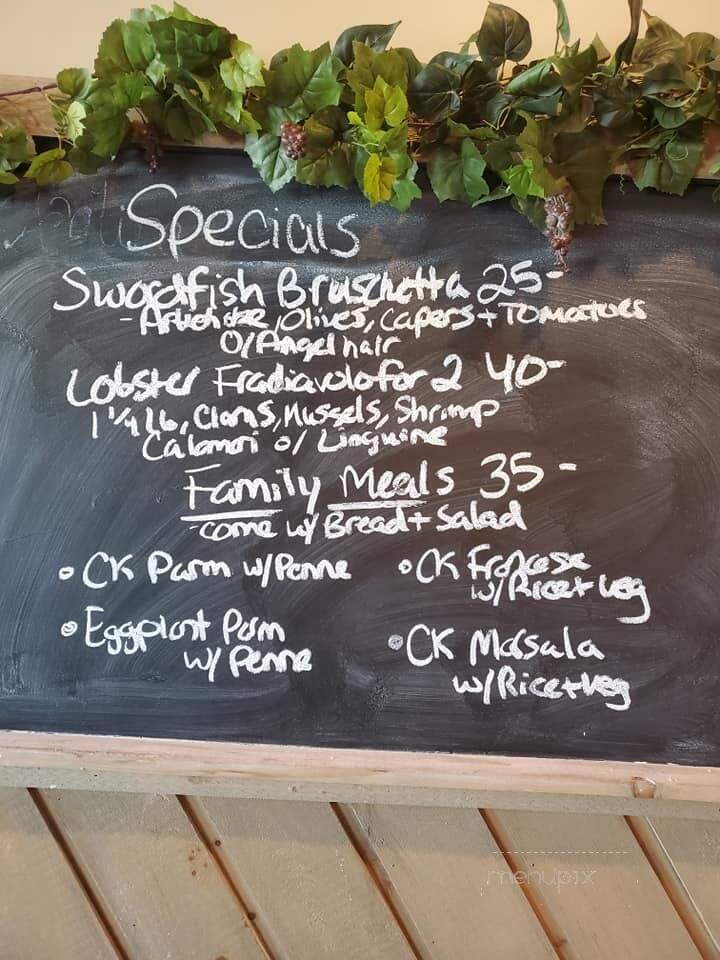 Specials
Swordfish Bruschetta 25-
- Artichoke, Olives, Capers + Tomatoes
O/Angel hair
Lobster Fradiavolo for 2 40-
1 1/4 lb, Clams, Mussels, Shrimp
Calamari o/ Linguine
Family Meals 35-
- come w/ Bread + Salad
• CK Parm w/Penne
• CK Francese
w/Rice + veg
• Eggplant Parm
w/ Penne
• CK Marsala
w/Rice + veg
menupix